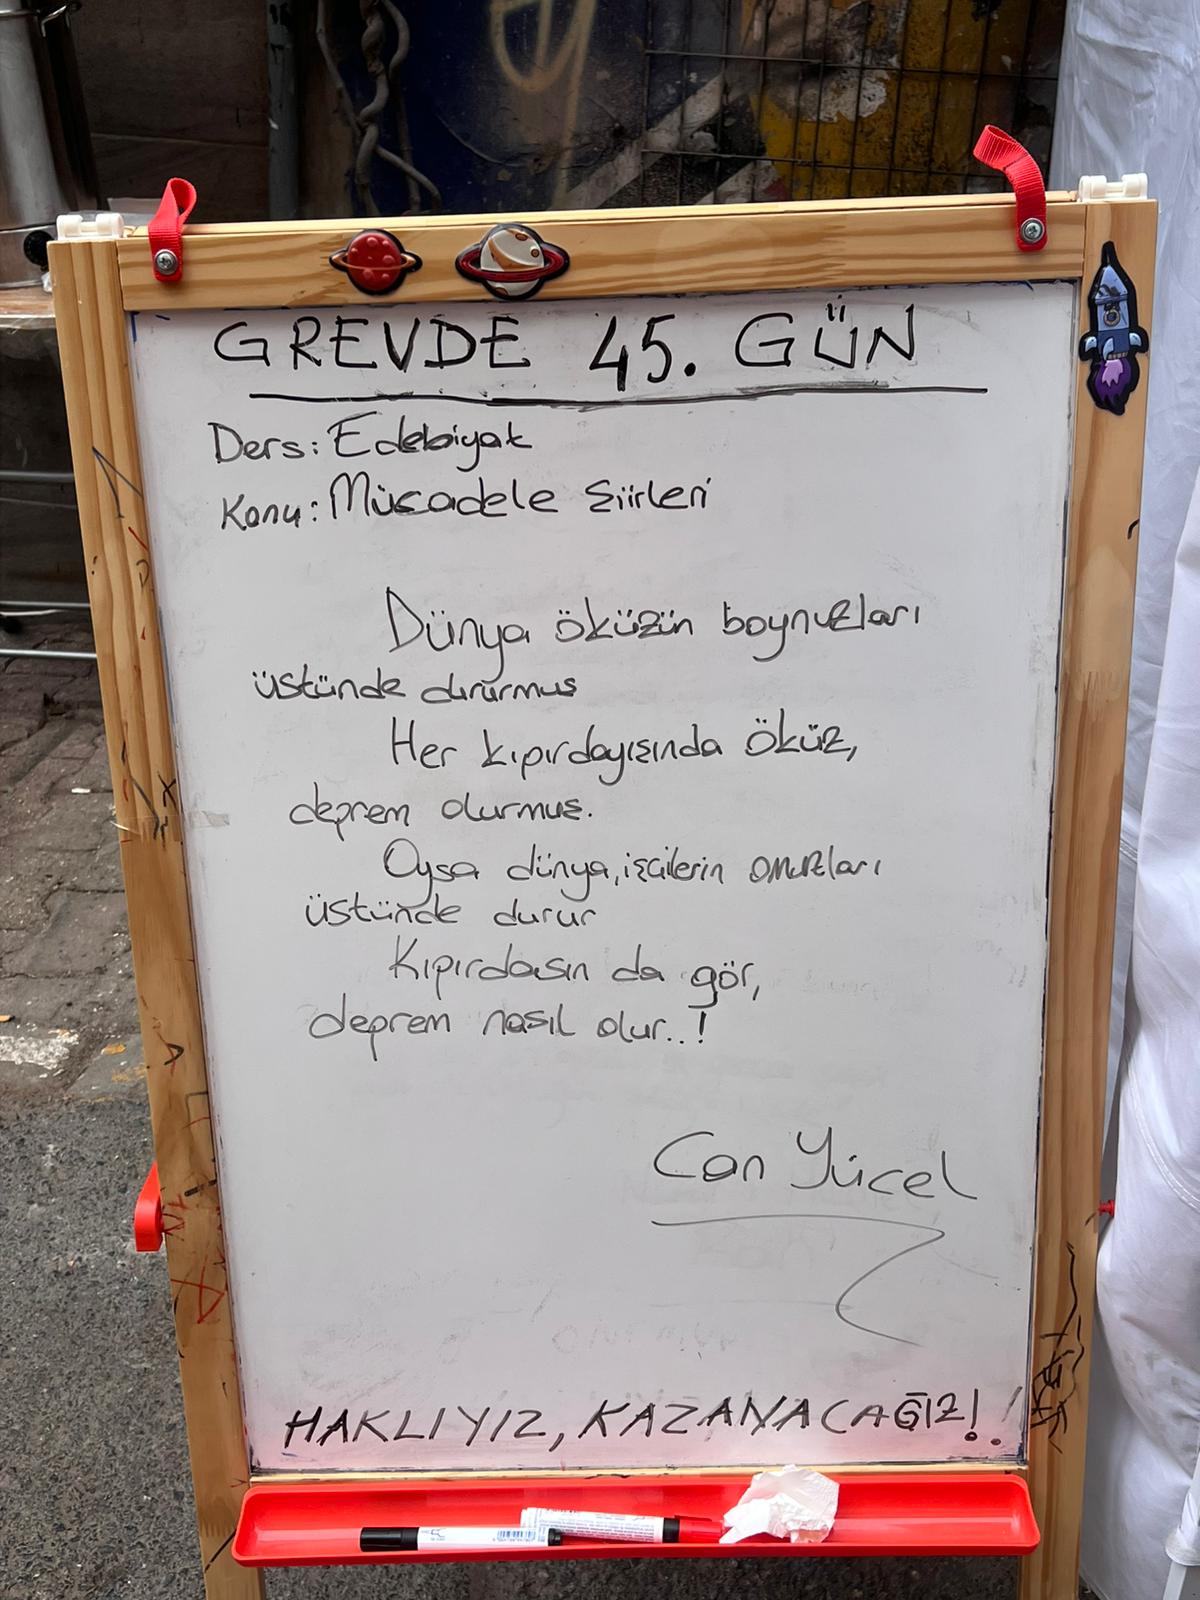 GREVDE 45. GÜN
Ders: Edebiyat
Konu: Mücadele Şiirleri
Dünya öküzün boynuzları
üstünde dururmuş
Her kıpırdayışında öküz,
deprem olurmuş.
Oysa dünya, işçilerin omuzları
üstünde durur
Kıpırdasın da gör,
deprem nasıl olur..!
Can Yücel
HAKLIYIZ, KAZANACAĞIZ!!